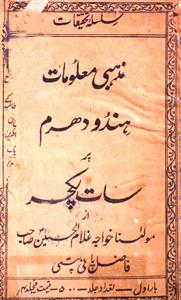 سلسلہ تحقیقات
مذہبی معلومات
ہندو دھرم
پر
سات لیکچر
از
مولٰنا خواجہ غلام الحسنین صاحب
فاضل پانی پتی
بار اول - تعداد جلد ۵۰۰ - قیمت فیجلد